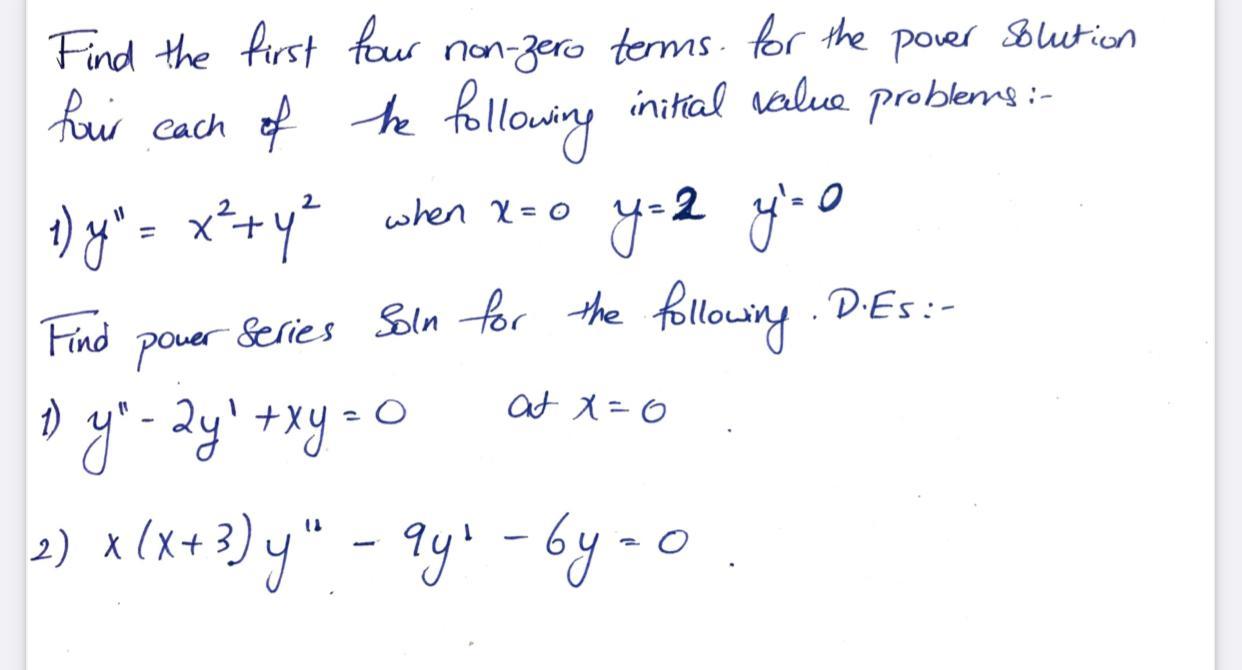 Find the first four non-zero terms. for the power Solution
four each of the following initial value problems :-
1) y" = x²+y² when x=0 y=2 y'=0
Find power series Soln for the following . D.Es :-
1) y" - 2y' +xy = 0 at x=0 .
2) x(x+3) y" - 9y' - 6y = 0 .